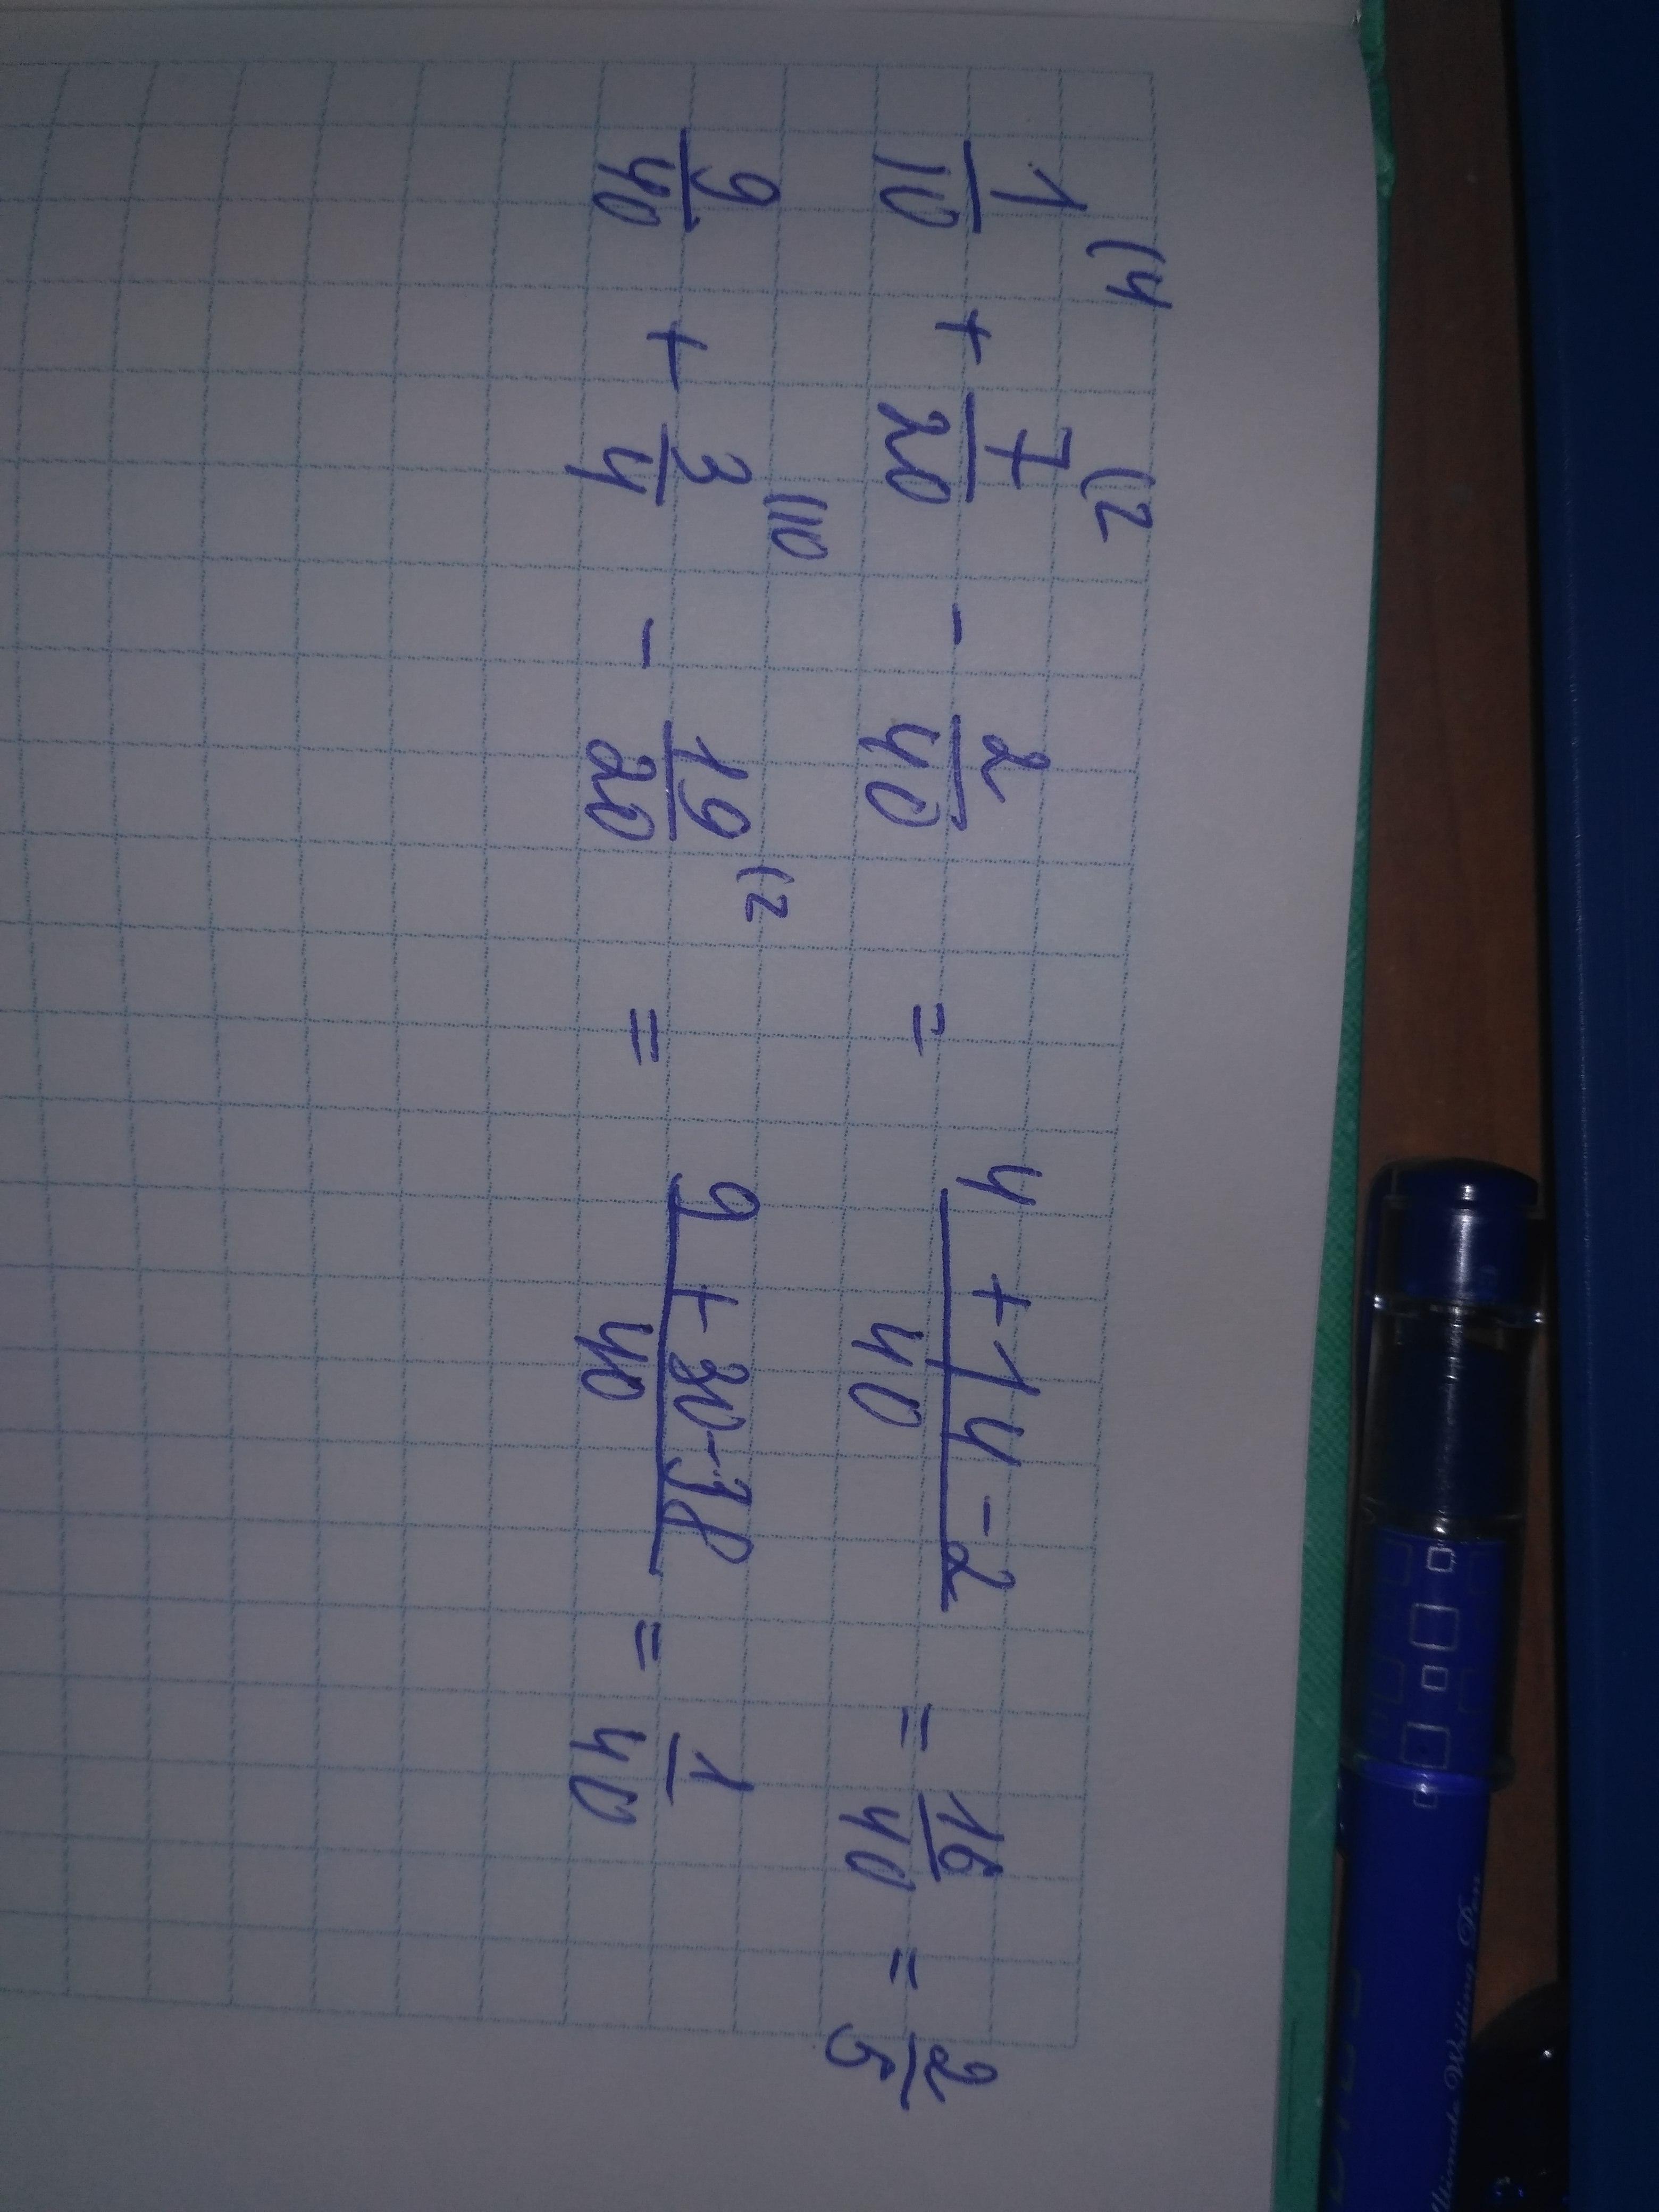 1/10 (4 + 7/20 (2 - 2/40 = 4 + 14 - 2/40 = 16/40 = 2/5
9/40 + 3/4 (10 - 19/20 (2 = 9 + 30 - 38/40 = 1/40
Writing Pen